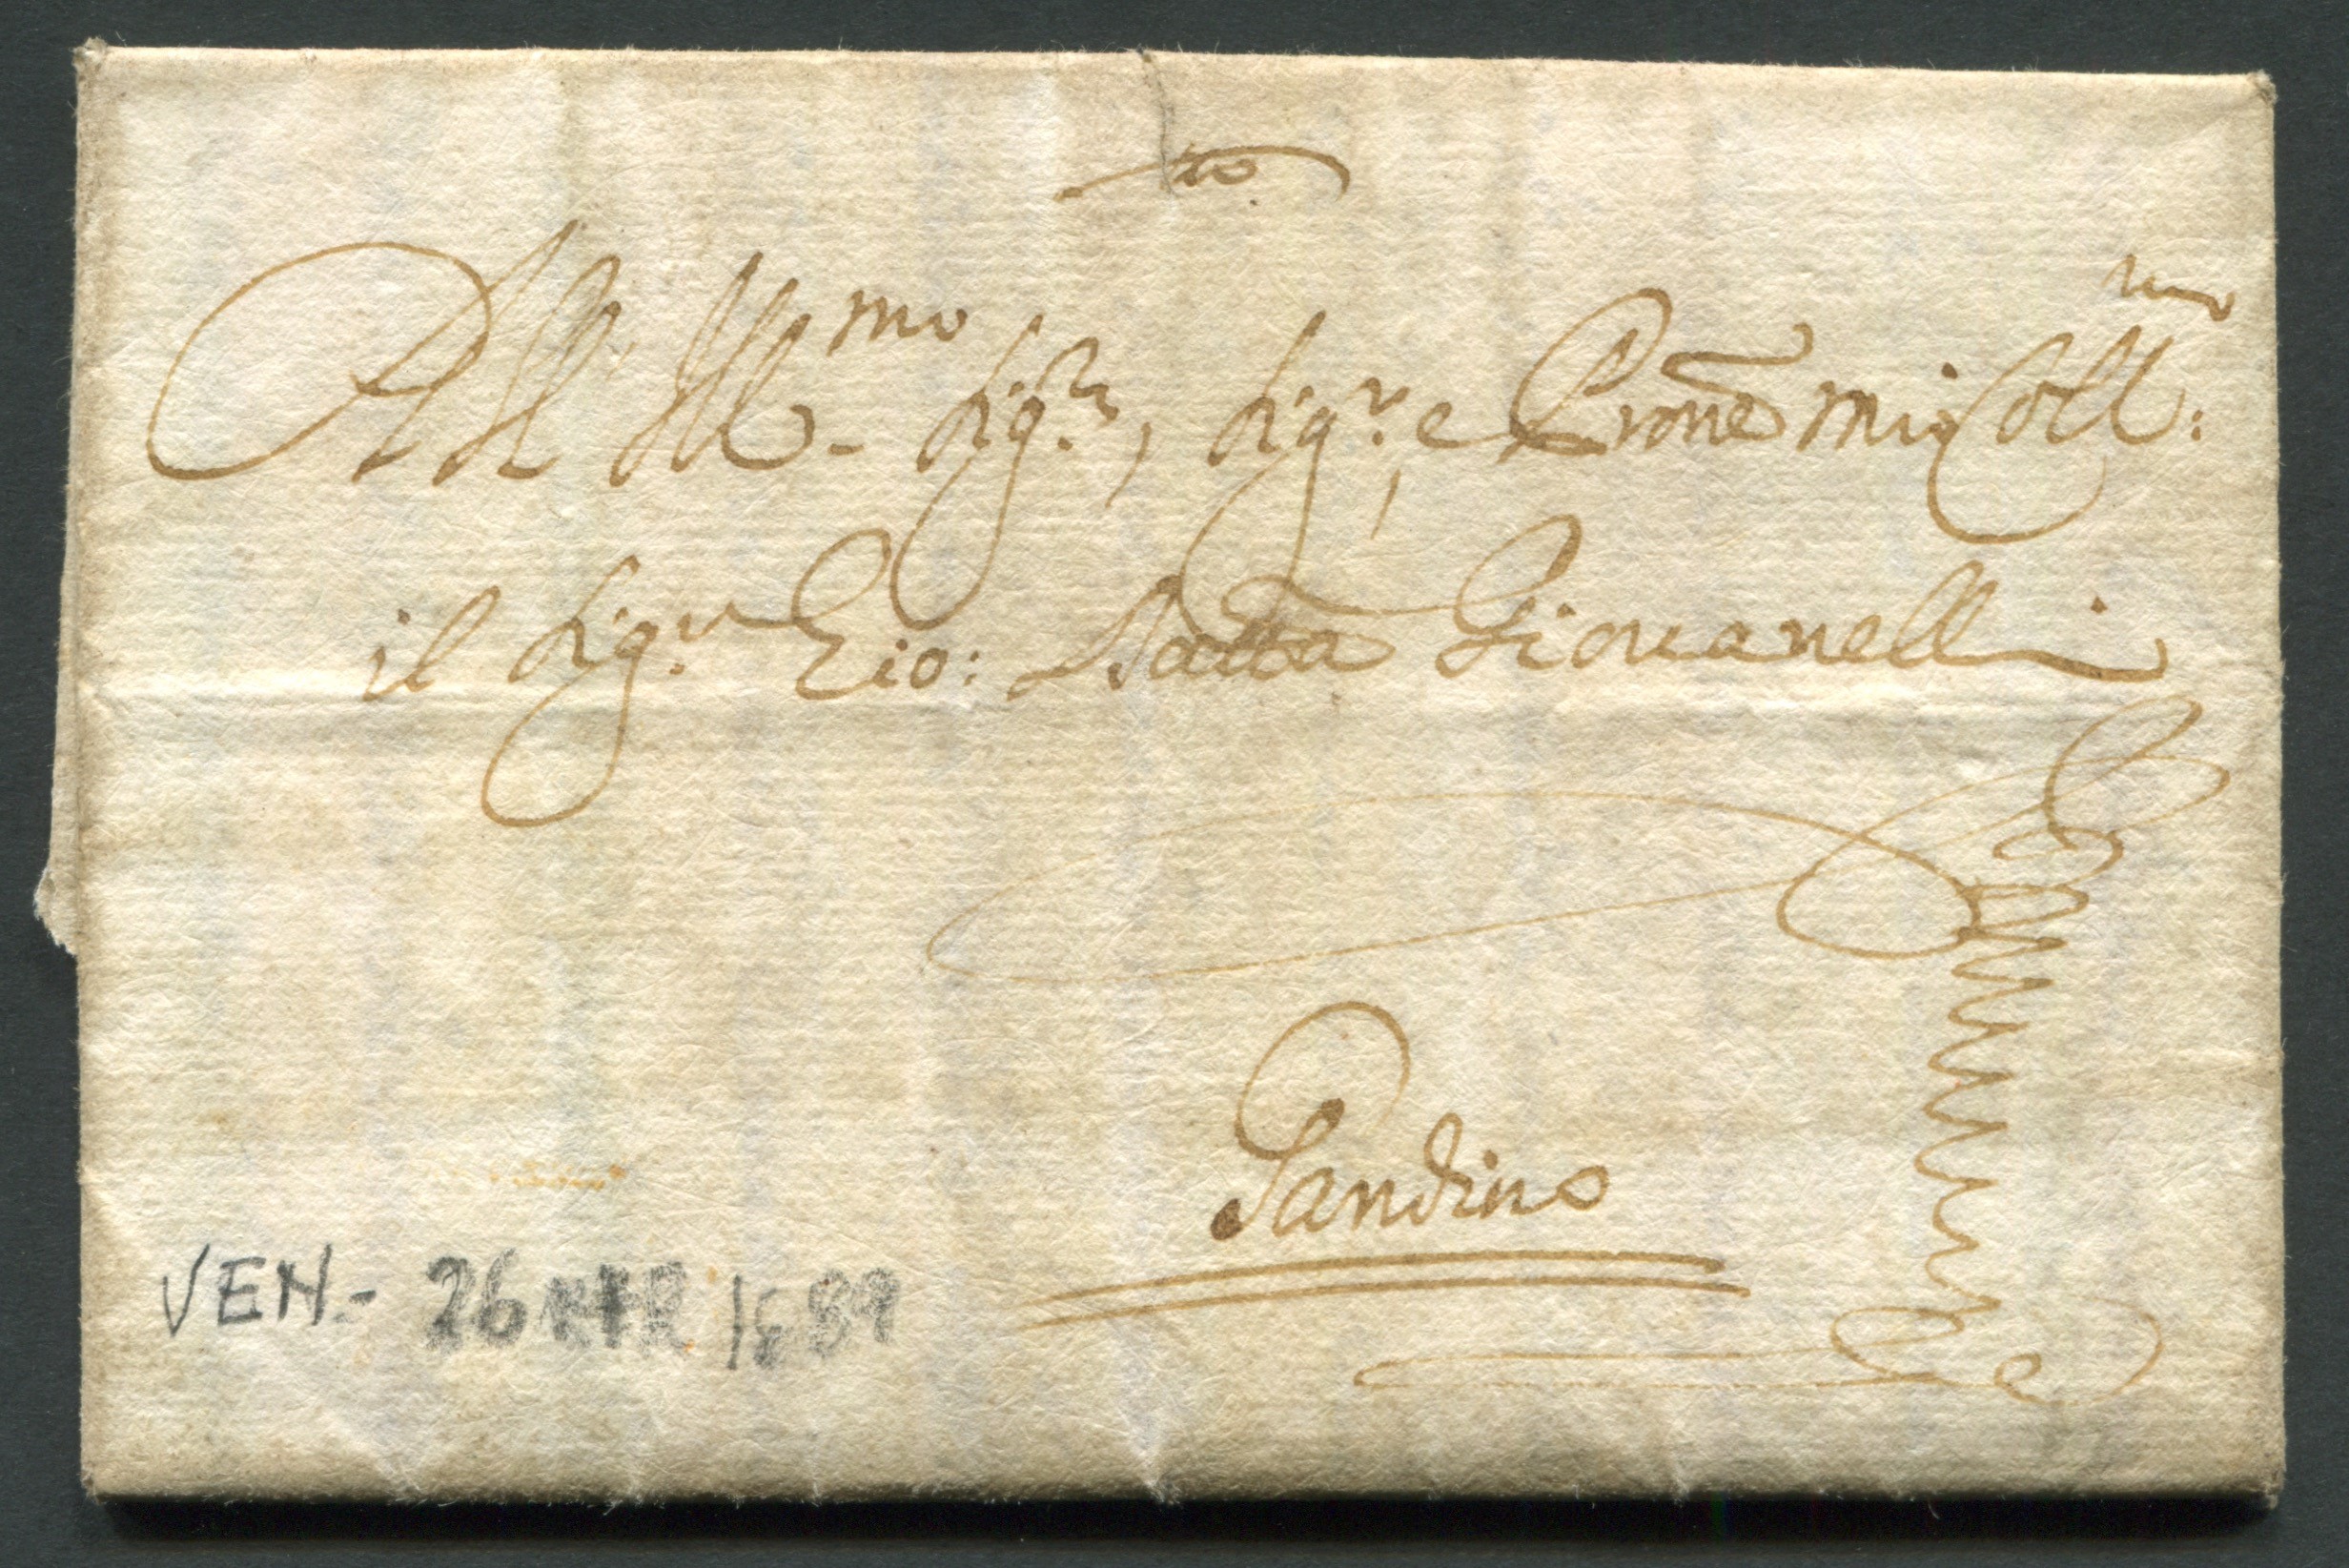 All' Ill.mo Sig.r, Sig.r, e P̄rone mio Coll.mo:
il Sig.r Gio: Batta Giovanelli
Gandino
VEN.- 26 1689